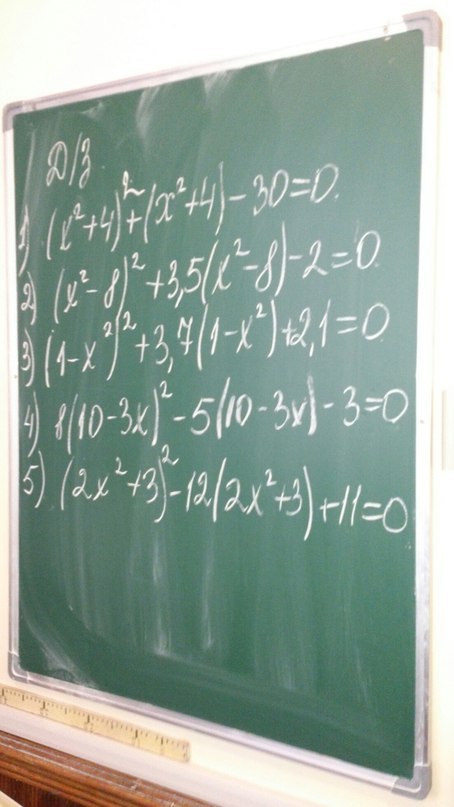 Д/З
1) (x²+4)²+(x²+4)-30=0.
2) (x²-8)²+3,5(x²-8)-2=0.
3) (1-x²)²+3,7(1-x²)+2,1=0
4) 8(10-3x)²-5(10-3x)-3=0
5) (2x²+3)²-12(2x²+3)+11=0